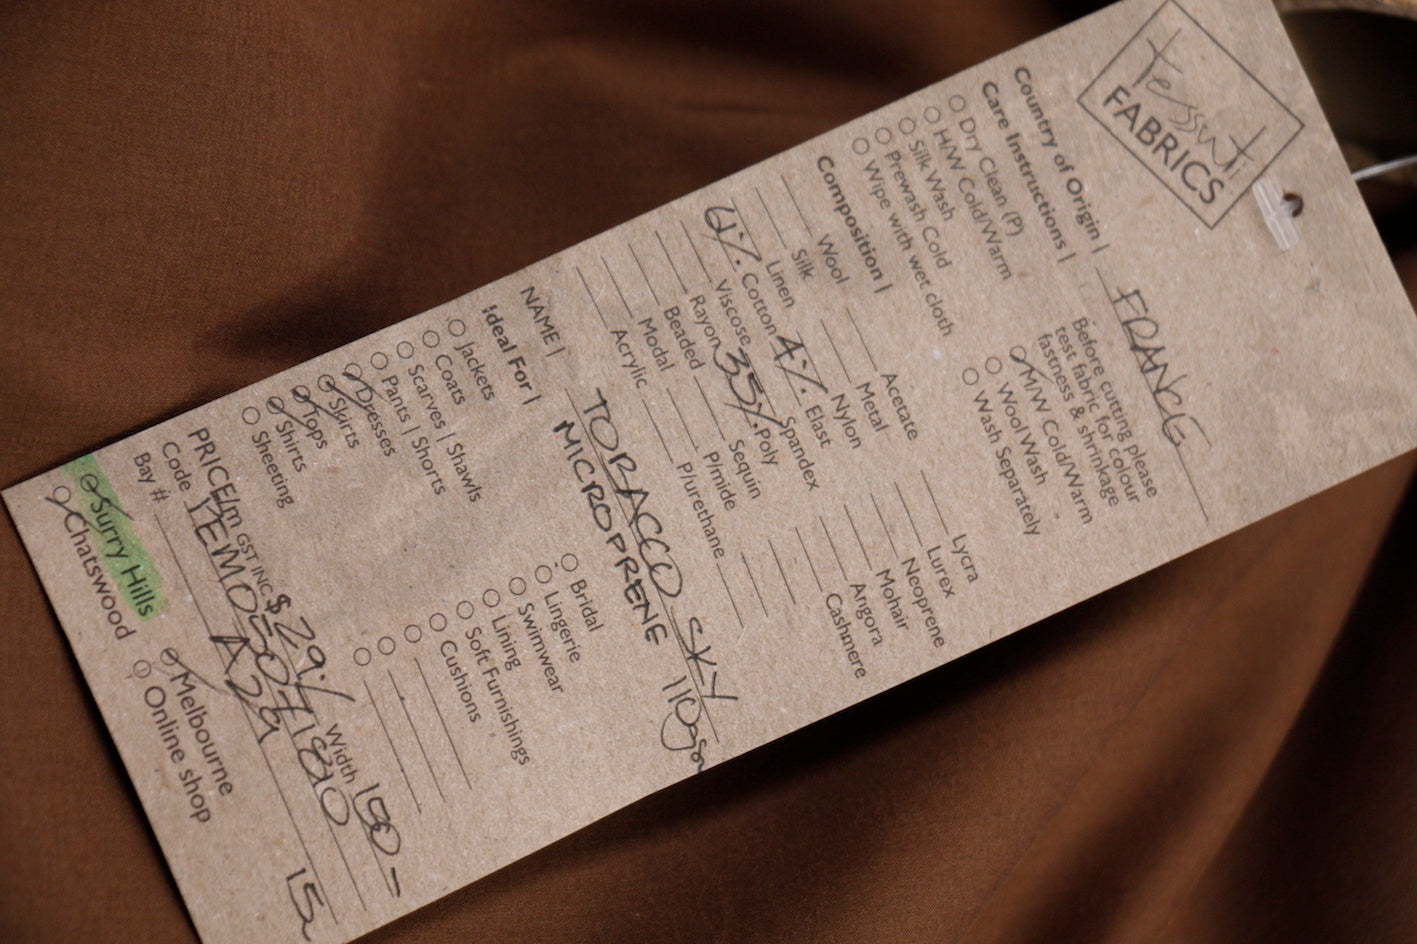 tessuti
FABRICS
Country of Origin | FRANCE
Care Instructions |
Before cutting please
test fabric for colour
fastness & shrinkage
Dry Clean (P)
H/W Cold/Warm
Silk Wash
Prewash Cold
Wipe with wet cloth
M/W Cold/Warm
Wool Wash
Wash Separately
Composition |
Wool
Silk
Linen
61% Cotton
Viscose
Rayon
Beaded
Modal
Acrylic
Acetate
Metal
Nylon
4% Elast
Spandex
35% Poly
Sequin
P/mide
P/urethane
Lycra
Lurex
Neoprene
Mohair
Angora
Cashmere
NAME | TOBACCO SKY
MICROPRENE 110gsm
Ideal For |
Jackets
Coats
Scarves | Shawls
Pants | Shorts
Dresses
Skirts
Tops
Shirts
Sheeting
Bridal
Lingerie
Swimwear
Lining
Soft Furnishings
Cushions
PRICE/m GST INC $29.- Width 150-
Code
Bay # A29
Surry Hills
Chatswood
Melbourne
Online shop